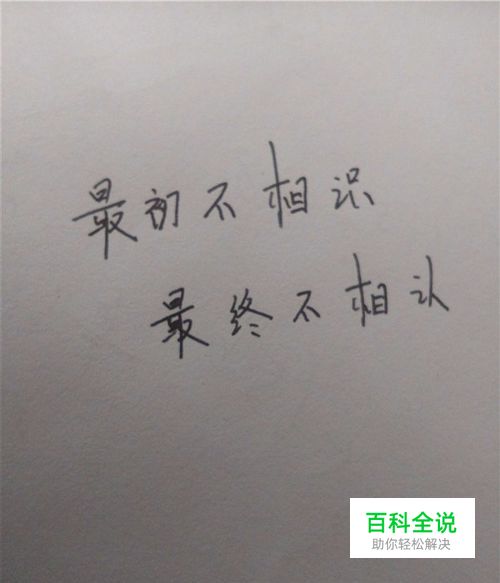 最初不相识
最终不相认
百科全说
助你轻松解决